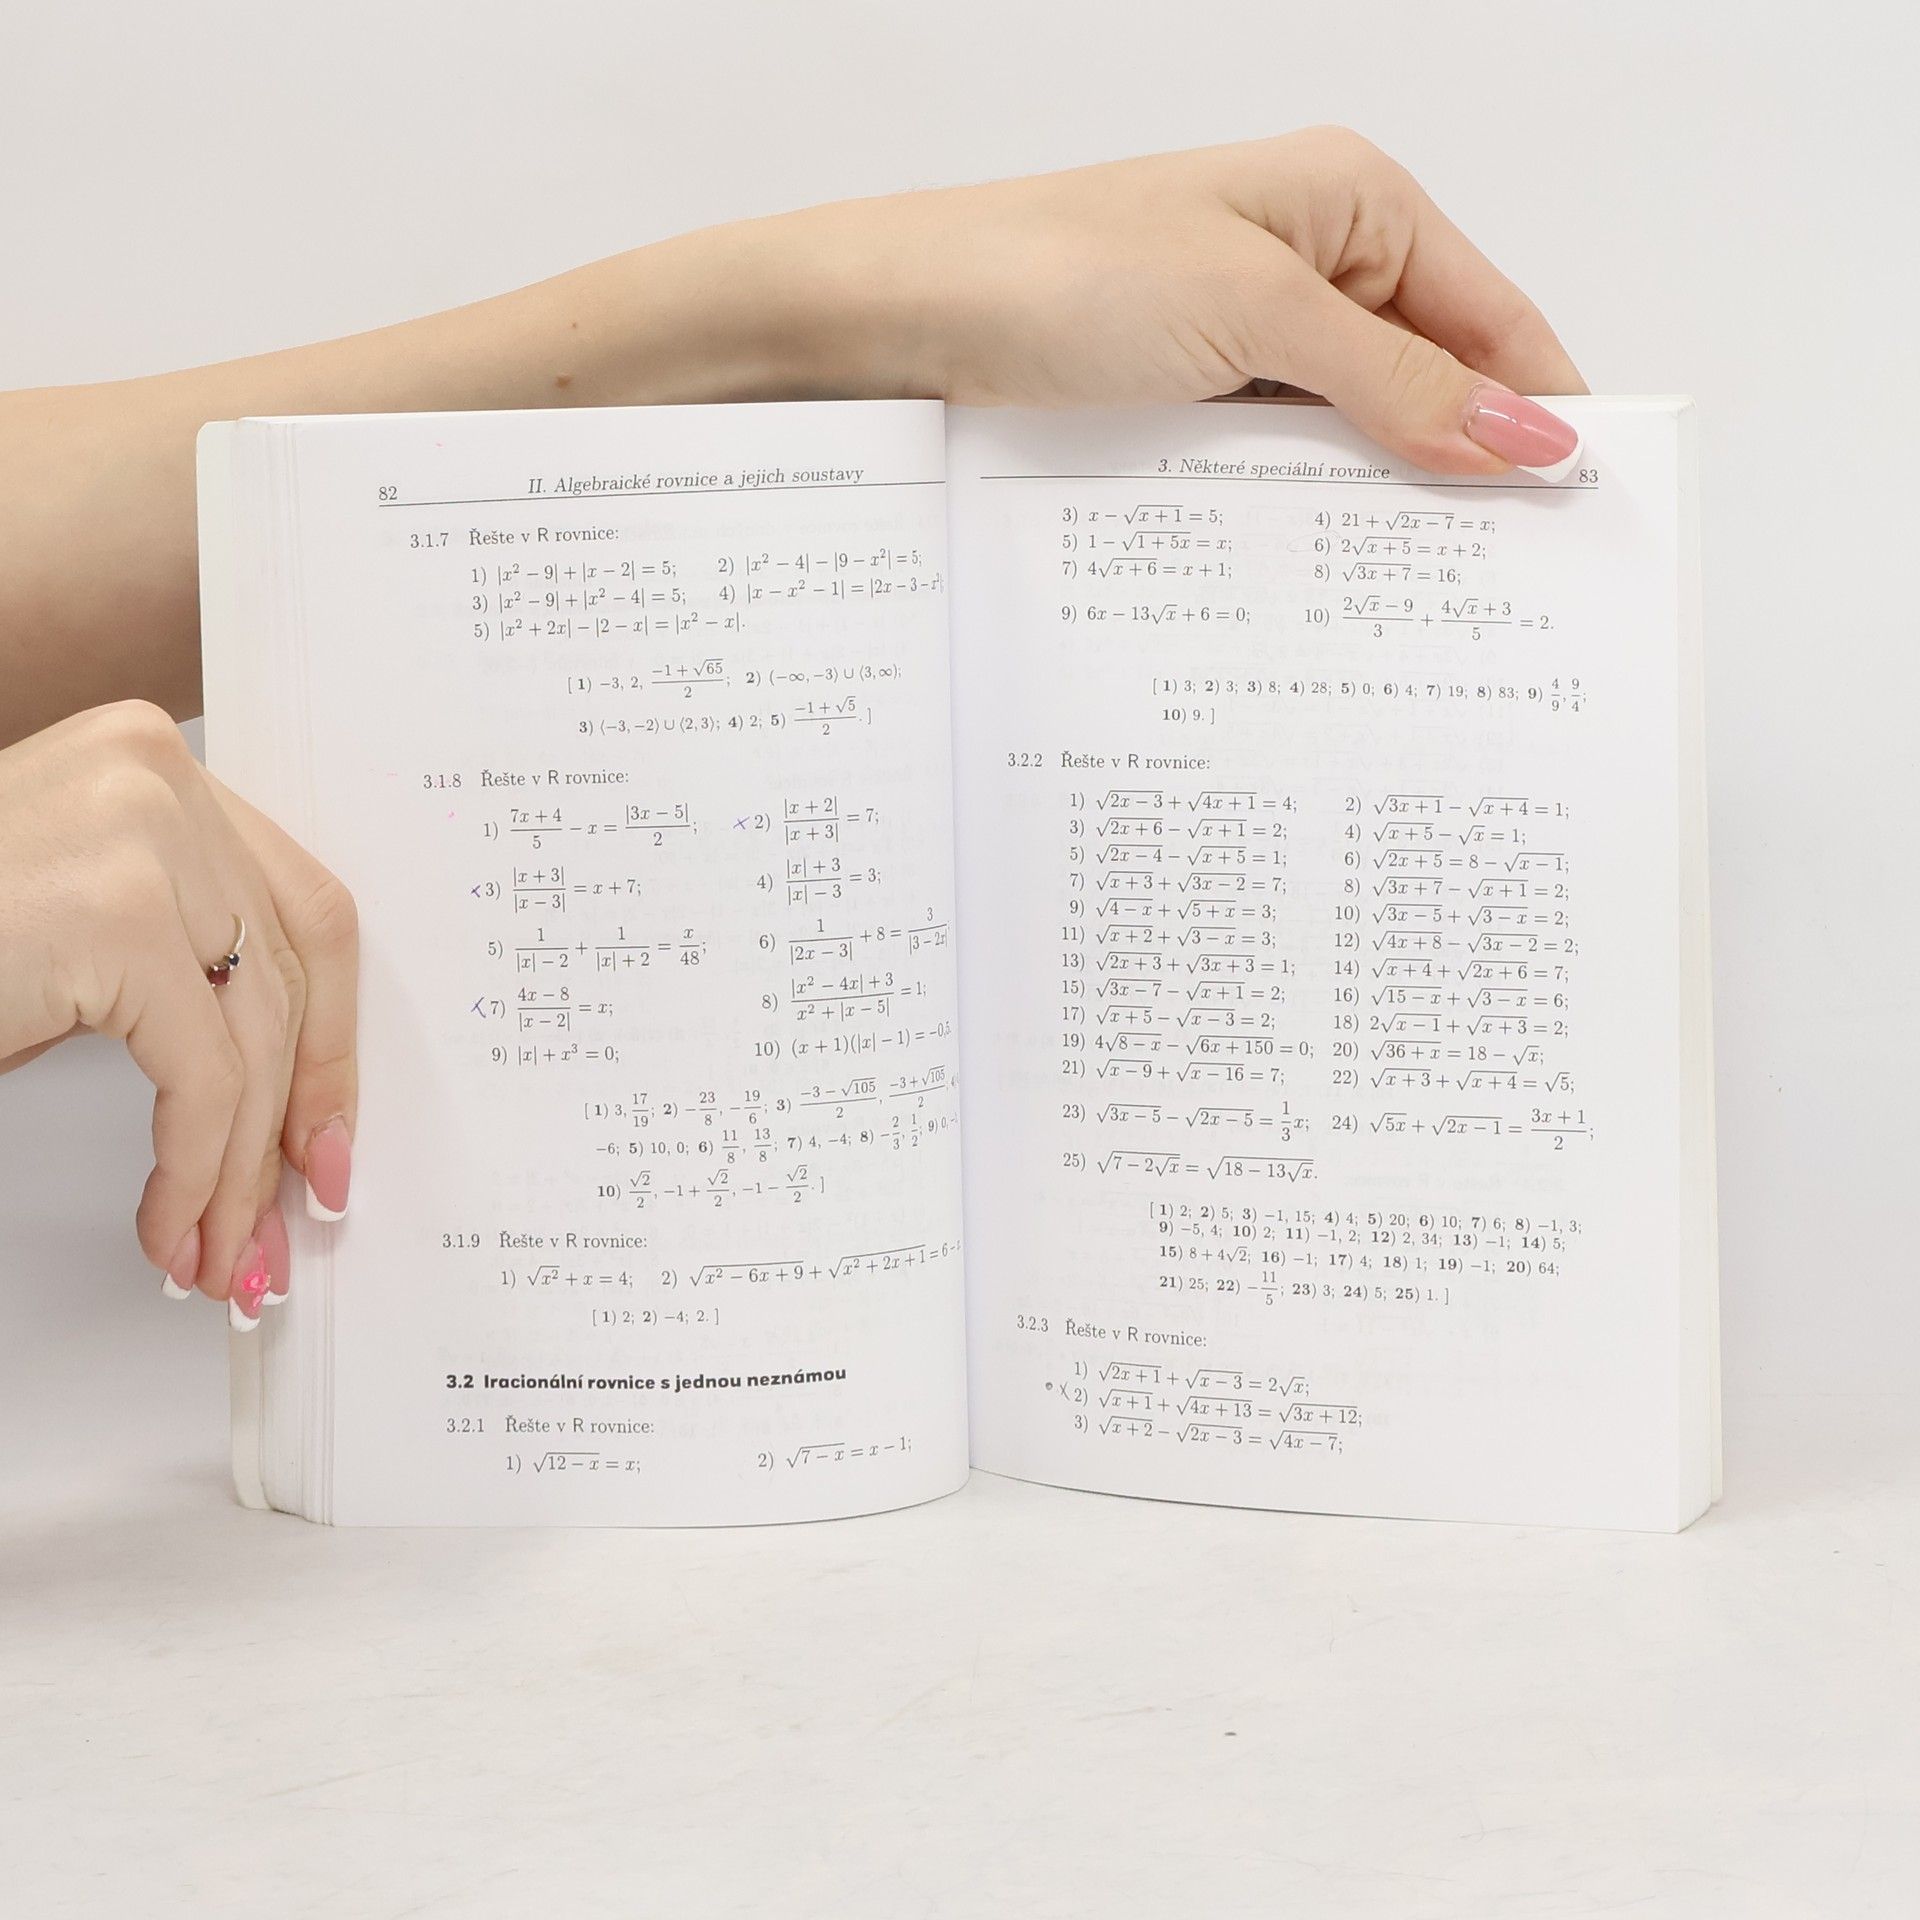 82 II. Algebraické rovnice a jejich soustavy
3.1.7 Řešte v R rovnice:
1) |x² − 9| + |x − 2| = 5; 2) |x² − 4| − |9 − x²| = 5;
3) |x² − 9| + |x² − 4| = 5; 4) |x − x² − 1| = |2x − 3 − x²|;
5) |x² + 2x| − |2 − x| = |x² − x|.
[ 1) −3, 2, (−1 + √65)/2; 2) (−∞, −3⟩ ∪ ⟨3, ∞);
3) ⟨−3, −2⟩ ∪ ⟨2, 3⟩; 4) 2; 5) (−1 + √5)/2. ]
3.1.8 Řešte v R rovnice:
1) (7x + 4)/5 − x = |3x − 5|/2; × 2) |x + 2|/|x + 3| = 7;
× 3) |x + 3|/|x − 3| = x + 7; 4) (|x| + 3)/(|x| − 3) = 3;
5) 1/(|x| − 2) + 1/(|x| + 2) = x/48; 6) 1/|2x − 3| + 8 = 3/|3 − 2x|
× 7) (4x − 8)/|x − 2| = x; 8) (|x² − 4x| + 3)/(x² + |x − 5|) = 1;
9) |x| + x³ = 0; 10) (x + 1)(|x| − 1) = −0,5.
[ 1) 3, 17/19; 2) −23/8, −19/6; 3) (−3 − √105)/2, (−3 + √105)/2,
−6; 5) 10, 0; 6) 11/8, 13/8; 7) 4, −4; 8) −2/3, 1/2; 9) 0,
10) √2/2, −1 + √2/2, −1 − √2/2. ]
3.1.9 Řešte v R rovnice:
1) √(x²) + x = 4; 2) √(x² − 6x + 9) + √(x² + 2x + 1) = 6 −
[ 1) 2; 2) −4; 2. ]
3.2 Iracionální rovnice s jednou neznámou
3.2.1 Řešte v R rovnice:
1) √(12 − x) = x; 2) √(7 − x) = x − 1;
3. Některé speciální rovnice 83
3) x − √(x + 1) = 5; 4) 21 + √(2x − 7) = x;
5) 1 − √(1 + 5x) = x; 6) 2√(x + 5) = x + 2;
7) 4√(x + 6) = x + 1; 8) √(3x + 7) = 16;
9) 6x − 13√x + 6 = 0; 10) (2√x − 9)/3 + (4√x + 3)/5 = 2.
[ 1) 3; 2) 3; 3) 8; 4) 28; 5) 0; 6) 4; 7) 19; 8) 83; 9) 4/9, 9/4;
10) 9. ]
3.2.2 Řešte v R rovnice:
1) √(2x − 3) + √(4x + 1) = 4; 2) √(3x + 1) − √(x + 4) = 1;
3) √(2x + 6) − √(x + 1) = 2; 4) √(x + 5) − √x = 1;
5) √(2x − 4) − √(x + 5) = 1; 6) √(2x + 5) = 8 − √(x − 1);
7) √(x + 3) + √(3x − 2) = 7; 8) √(3x + 7) − √(x + 1) = 2;
9) √(4 − x) + √(5 + x) = 3; 10) √(3x − 5) + √(3 − x) = 2;
11) √(x + 2) + √(3 − x) = 3; 12) √(4x + 8) − √(3x − 2) = 2;
13) √(2x + 3) + √(3x + 3) = 1; 14) √(x + 4) + √(2x + 6) = 7;
15) √(3x − 7) − √(x + 1) = 2; 16) √(15 − x) + √(3 − x) = 6;
17) √(x + 5) − √(x − 3) = 2; 18) 2√(x − 1) + √(x + 3) = 2;
19) 4√(8 − x) − √(6x + 150) = 0; 20) √(36 + x) = 18 − √x;
21) √(x − 9) + √(x − 16) = 7; 22) √(x + 3) + √(x + 4) = √5;
23) √(3x − 5) − √(2x − 5) = 1/3 x; 24) √(5x) + √(2x − 1) = (3x + 1)/2;
25) √(7 − 2√x) = √(18 − 13√x).
[ 1) 2; 2) 5; 3) −1, 15; 4) 4; 5) 20; 6) 10; 7) 6; 8) −1, 3;
9) −5, 4; 10) 2; 11) −1, 2; 12) 2, 34; 13) −1; 14) 5;
15) 8 + 4√2; 16) −1; 17) 4; 18) 1; 19) −1; 20) 64;
21) 25; 22) −11/5; 23) 3; 24) 5; 25) 1. ]
3.2.3 Řešte v R rovnice:
1) √(2x + 1) + √(x − 3) = 2√x;
× 2) √(x + 1) + √(4x + 13) = √(3x + 12);
3) √(x + 2) − √(2x − 3) = √(4x − 7);